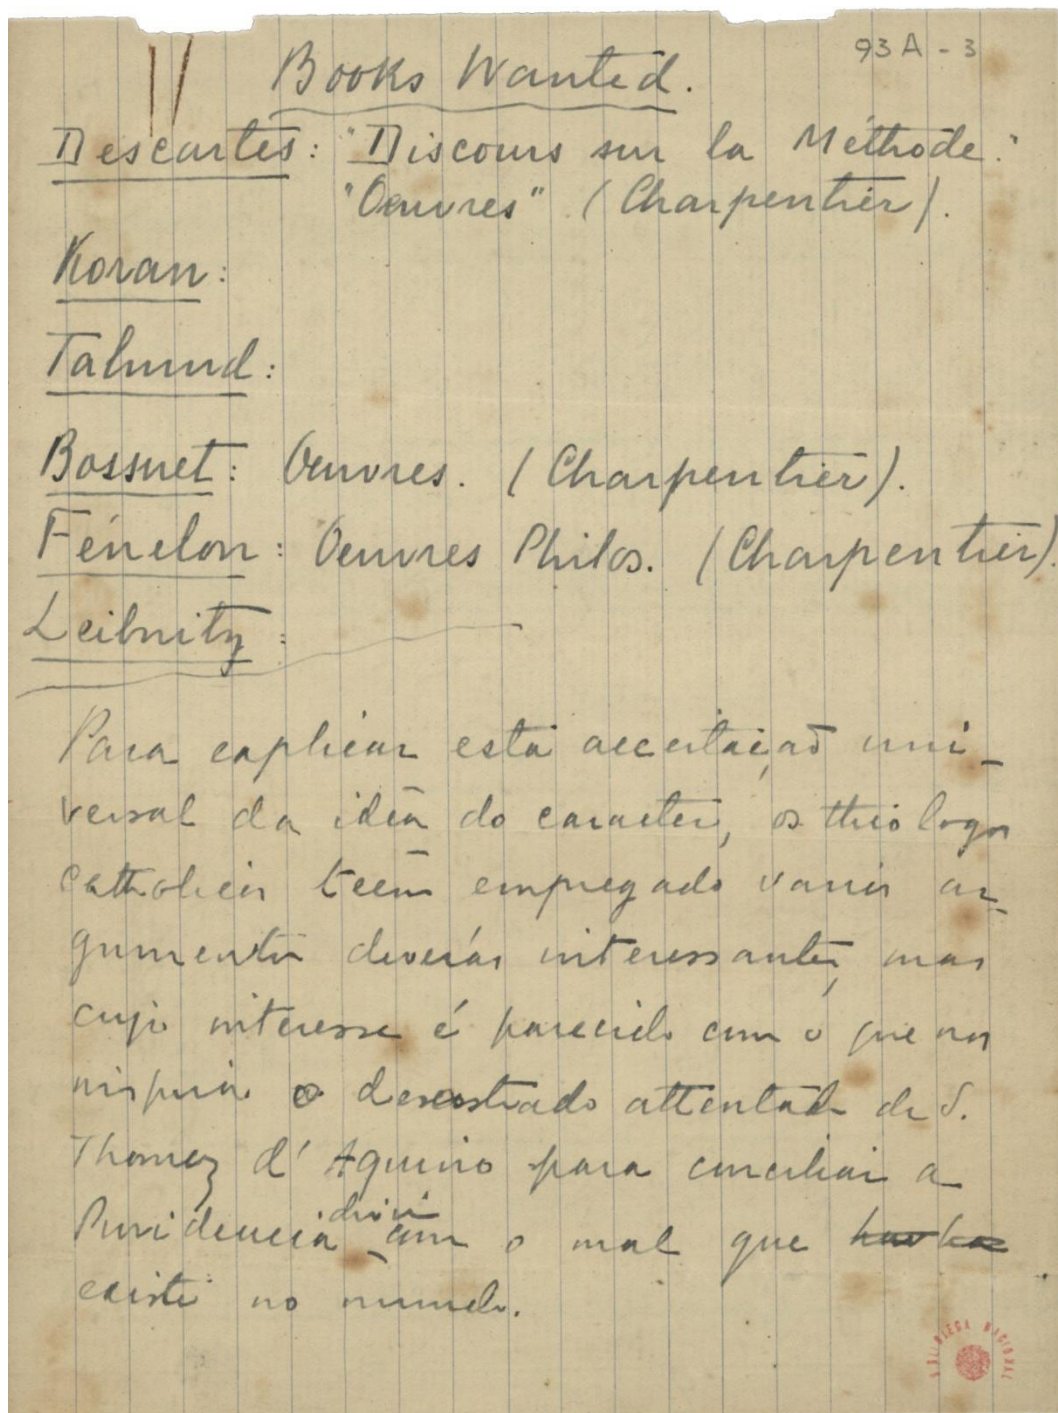 93A - 3
Books Wanted.
Descartes: "Discours sur la Méthode."
"Oeuvres" (Charpentier).
Koran:
Talmud:
Bossuet: Oeuvres. (Charpentier).
Fénelon: Oeuvres Philos. (Charpentier).
Leibnitz:
Para explicar esta acceitação uni-
versal da idéa do caracter, os theologos
catholicos teem empregado varios ar-
gumentos deveras interessantes, mas
cujo interesse é parecido com o que nos
inspira o desastrado attentado de S.
Thomaz d'Aquino para conciliar a
Providencia divina com o mal que
existe no mundo.
BIBLIOTECA NACIONAL